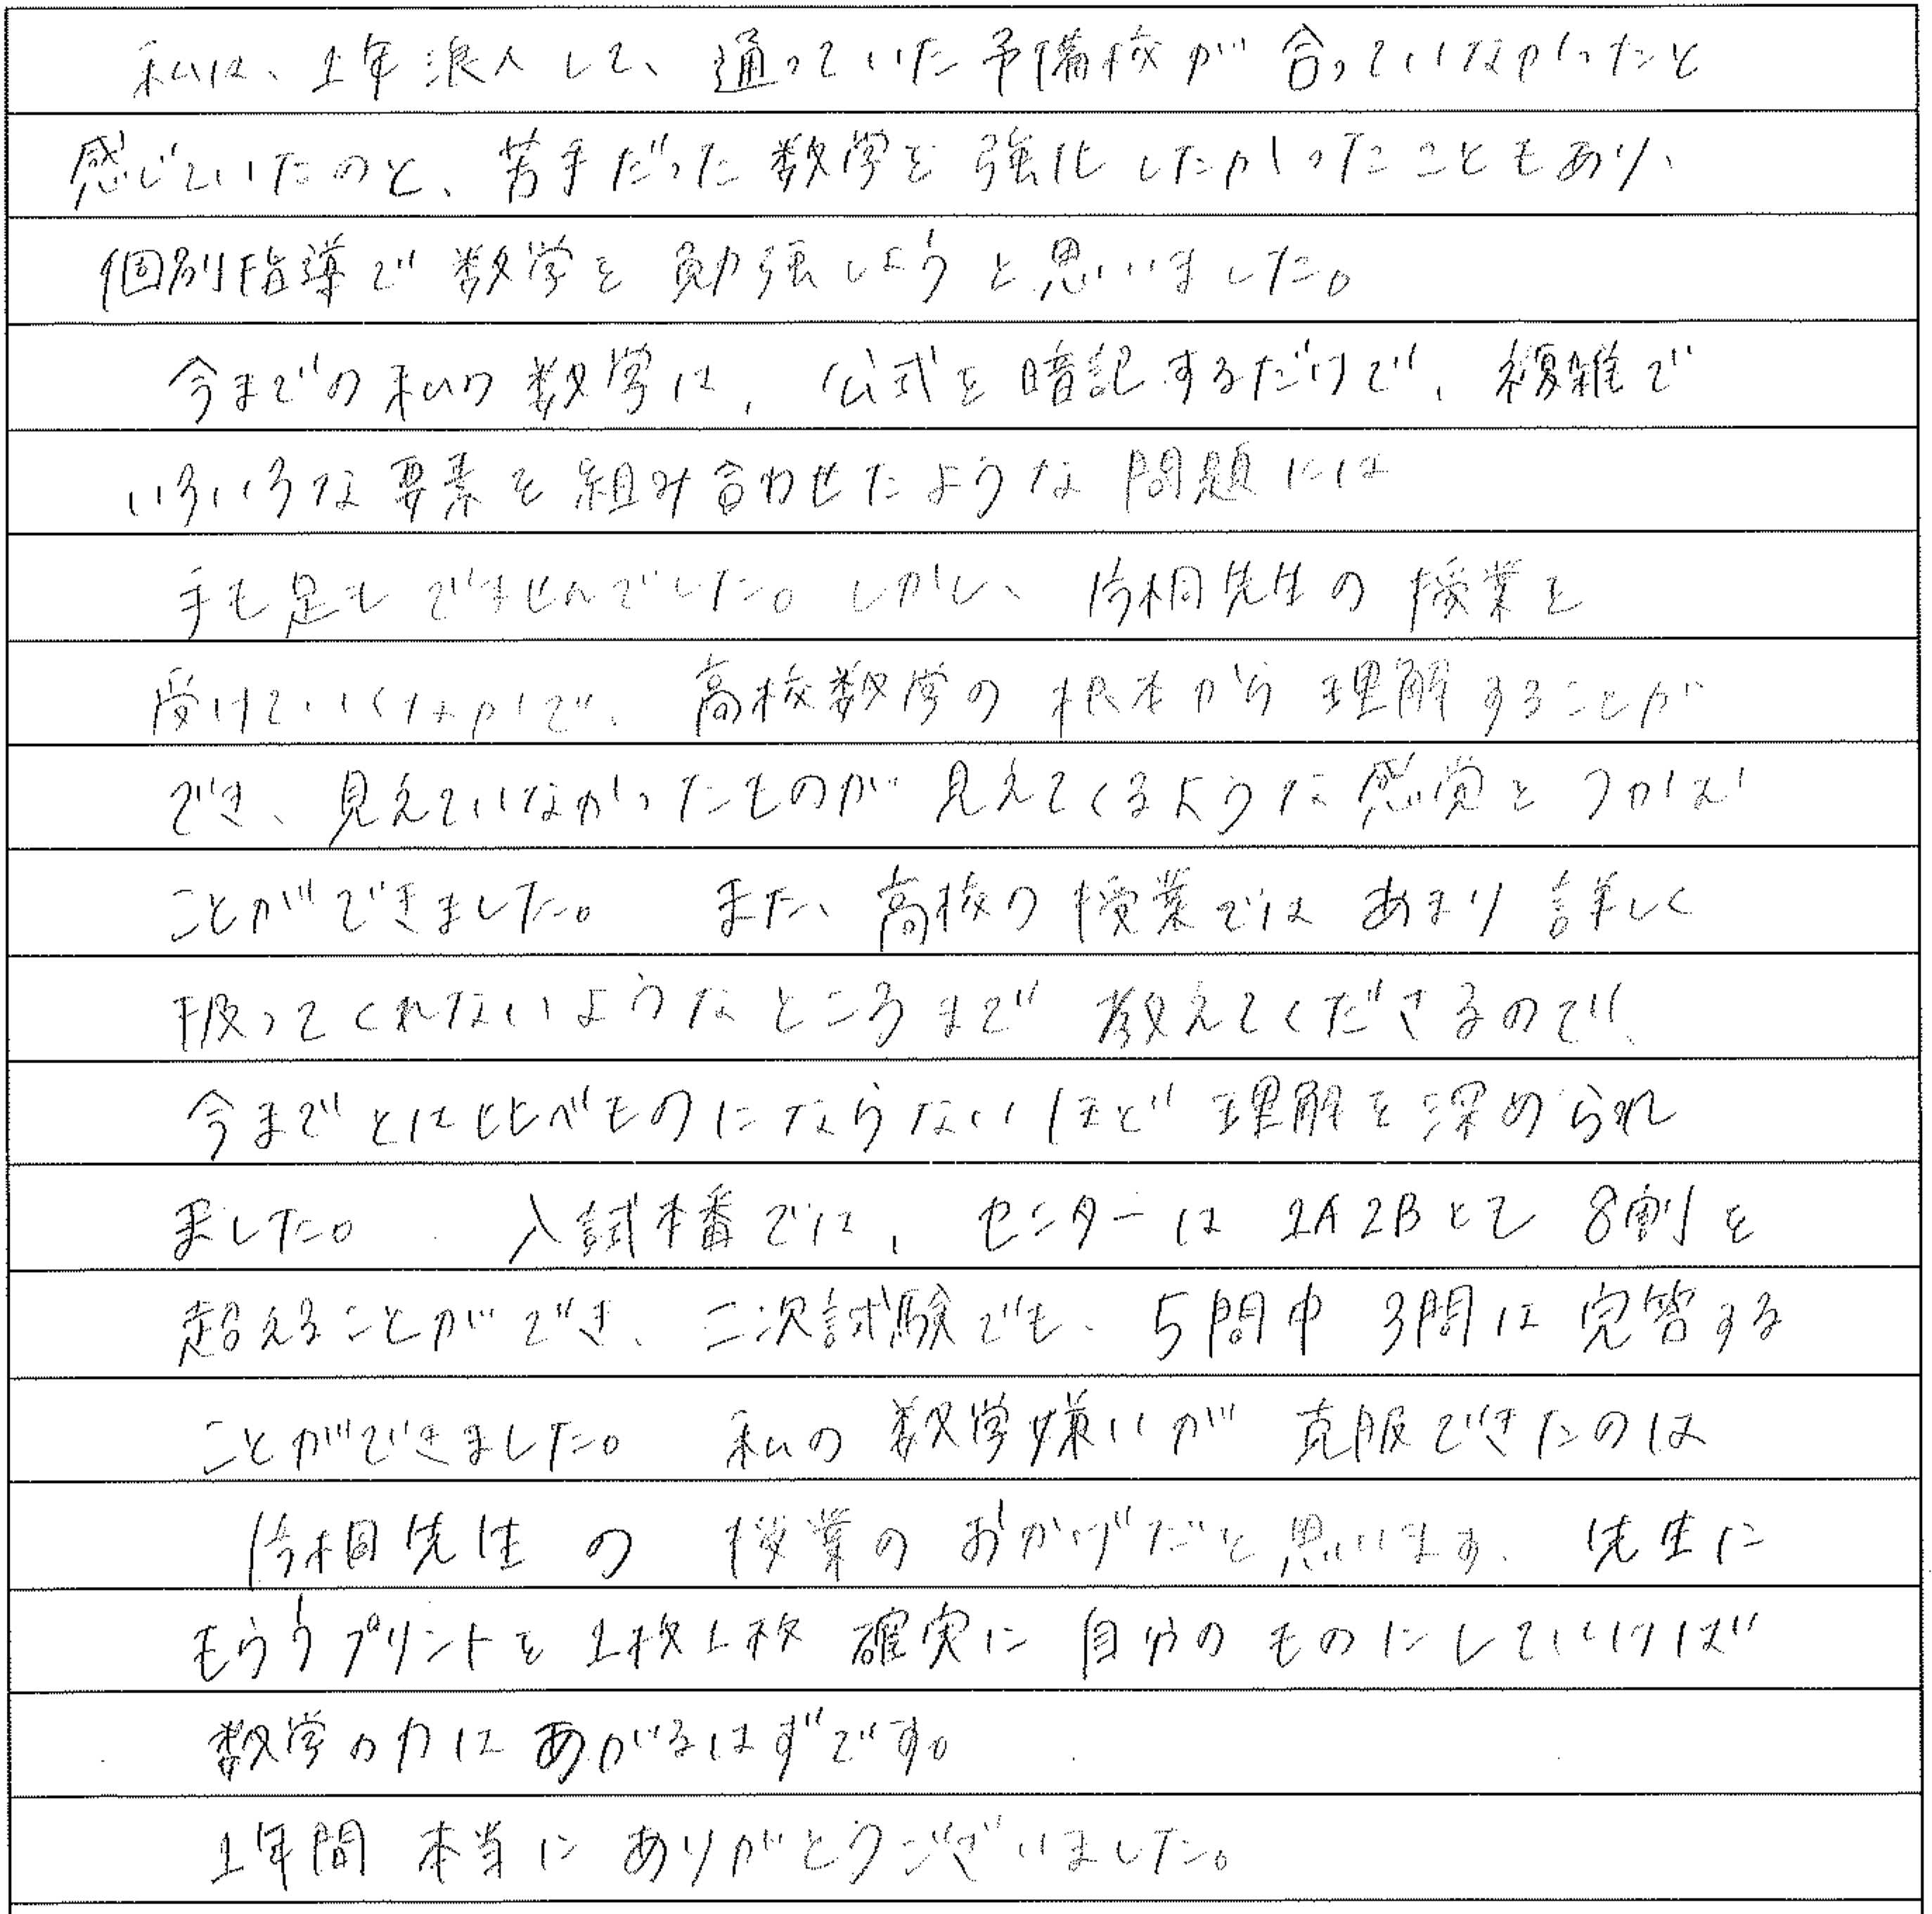 私は、1年浪人して、通っていた予備校が合っていなかったと
感じていたのと、苦手だった数学を強化したかったこともあり、
個別指導で数学を勉強しようと思いました。
今までの私の数学は、公式を暗記するだけで、複雑で
いろいろな要素を組み合わせたような問題には
手も足もでませんでした。しかし、片桐先生の授業を
受けていくなかで、高校数学の根本から理解することが
でき、見えていなかったものが見えてくるような感覚をつかむ
ことができました。 また、高校の授業ではあまり詳しく
扱ってくれないようなところまで教えてくださるので、
今までとは比べものにならないほど理解を深められ
ました。 入試本番では、センターは1A2Bとも8割を
超えることができ、二次試験でも、5問中3問は完答する
ことができました。 私の数学嫌いが克服できたのは
片桐先生の授業のおかげだと思います。 先生に
もらうプリントを1枚1枚確実に自分のものにしていけば
数学の力はあがるはずです。
1年間本当にありがとうございました。